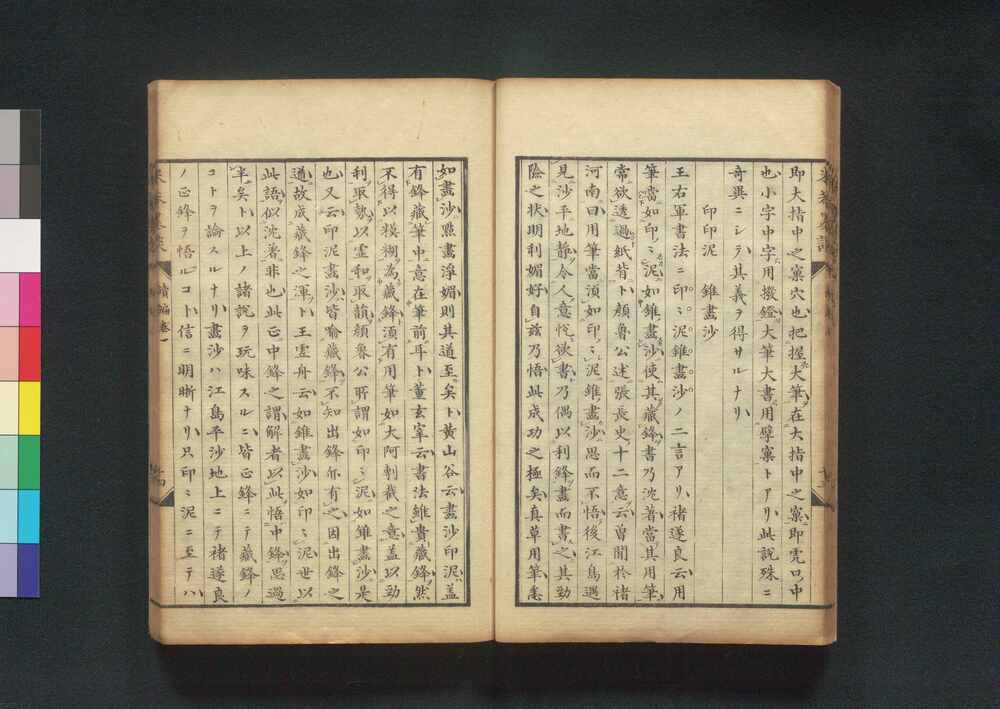 即大指中之窠穴也把握大筆在大指中之窠即虎口ノ中
也小字中字ニ用撥鐙大筆大書ニ用擘窠トアリ此說殊ニ
奇異ニシテ其義ヲ得サルナリ
印印泥　錐畫沙
王右軍書法ニ印ミ泥錐畫沙ノ二言アリ褚遂良云用
筆當如印ミ泥如錐畫沙使其藏鋒書乃沈著當其用筆
常欲透過紙背ト顏魯公述張長史十二意云曾聞於褚
河南曰用筆當須如印ミ泥錐畫沙思而不悟後江島遇
見沙平地靜令人意悅欲書乃偶以利鋒畫而書之其勁
險之狀明利媚好自茲乃悟此成功之極矣真草用筆悉
如畫沙點畫淨媚則其道至矣ト黃山谷云畫沙印泥蓋
有鋒藏筆中意在筆前耳ト董玄宰云書法雖貴藏鋒然
不得以糢糊為藏鋒須有用筆如大阿剸截之意蓋以勁
利取勢以虛和取韻顏魯公所謂如印ミ泥如錐畫沙是
也又云印泥畫沙皆喻藏鋒不知出鋒亦有之因出鋒之
遒故成藏鋒之渾ト王虛舟云如錐畫沙如印ミ泥世以
此語似沈著非也此正中鋒之謂解者以此悟中鋒思過
半矣ト以上ノ諸說ヲ玩味スルニ皆正鋒ニテ藏鋒ノ
コトヲ論スルナリ畫沙ハ江島平沙地上ニテ褚遂良
ノ正鋒ヲ悟ルコト信ニ明晰ナリ只印ミ泥ニ至テハ
續編卷一